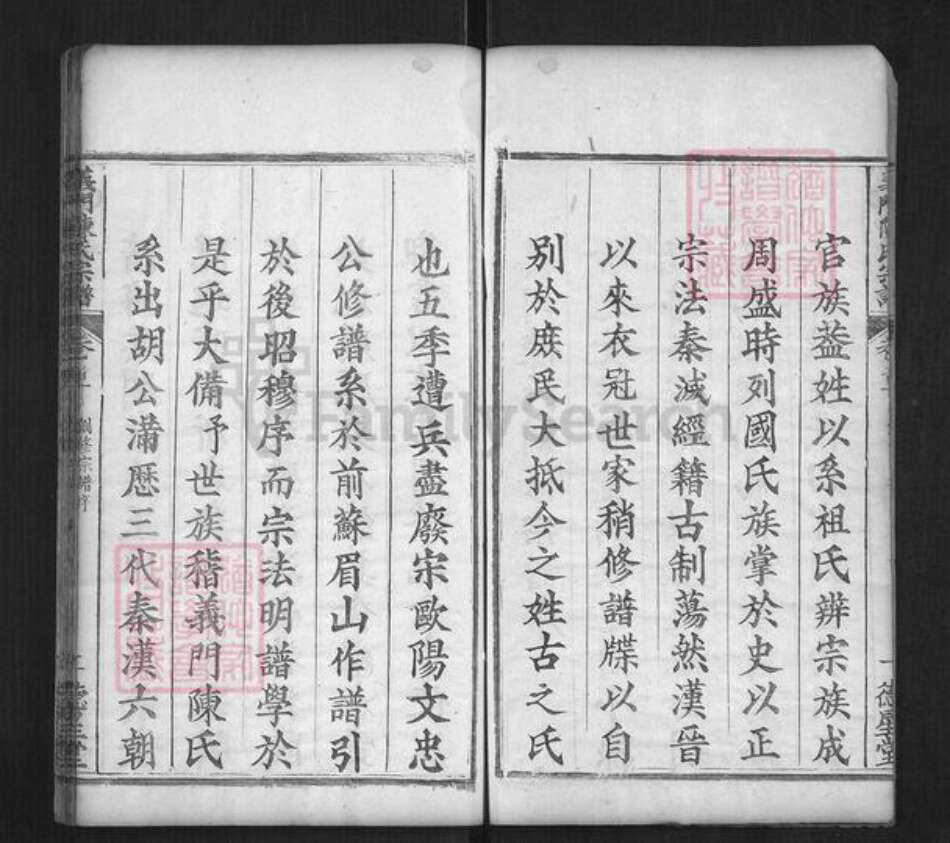 官族葢姓以系祖氏辨宗族成
周盛時列國氏族掌於史以正
宗法秦滅經籍古制蕩然漢晉
以來衣冠世家稍修譜牒以自
别於庻民大抵今之姓古之氏
也五季遭兵盡廢宋歐陽文忠
公修譜系於前蘇眉山作譜引
於後昭穆序而宗法明譜學於
是乎大備予世族稽義門陳氏
系出胡公滿歷三代秦漢六朝
義門陳氏宗譜
德星堂
FamilySearch